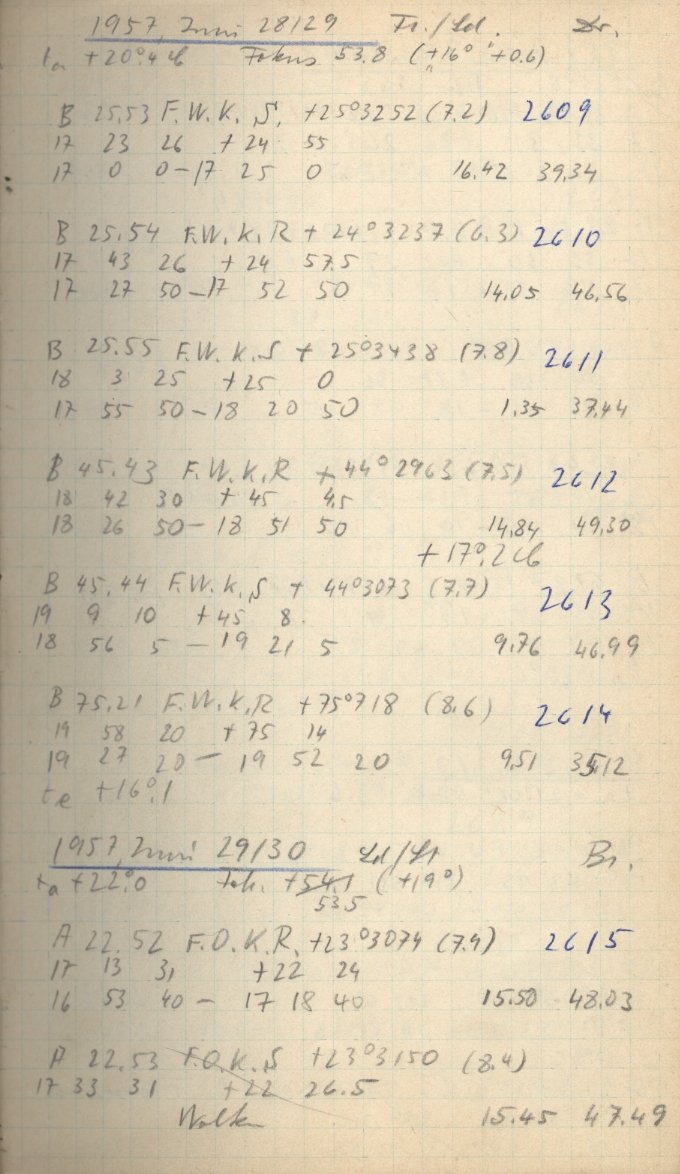 1957, Juni 28/29 Fr./Ld. Dr.
ta +20°.4 Fokus 53.8 (+16° +0.6)
B 25.53 F.W.K.S. +25°3252 (7.2) 2609
17 23 26 +24 55
17 0 0 - 17 25 0 16.42 39.34
B 25.54 F.W.K.R +24°3237 (6.3) 2610
17 43 26 +24 57.5
17 27 50 - 17 52 50 14.05 46.56
B 25.55 F.W.K.S +25°3438 (7.8) 2611
18 3 25 +25 0
17 55 50 - 18 20 50 1.35 37.44
B 45.43 F.W.K.R +44°2963 (7.5) 2612
18 42 30 +45 4.5
18 26 50 - 18 51 50 14.84 49.30
+17°.2
B 45.44 F.W.K.S +44°3073 (7.7) 2613
19 9 10 +45 8.
18 56 5 - 19 21 5 9.76 46.99
B 75.21 F.W.K.R +75°718 (8.6) 2614
19 58 20 +75 14
19 27 20 - 19 52 20 9.51 35.12
te +16°.1
1957, Juni 29/30 Br.
ta +22°.0 Fok. +54.1 (+19°)
53.5
A 22.52 F.O.K.R. +23°3074 (7.4) 2615
17 13 31 +22 24
16 53 40 - 17 18 40 15.50 48.03
A 22.53 F.O.K.S +23°3150 (8.4)
17 33 31 +22 26.5
Wolken 15.45 47.49